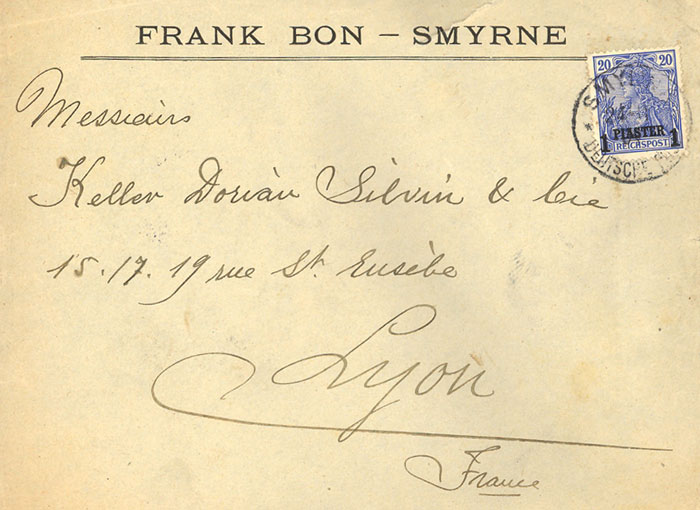 FRANK BON – SMYRNE
20 20
1 PIASTER 1
REICHSPOST
DEUTSCHE
Messiairs
Keller Dorian Silvin & Cie
15. 17. 19 rue St. Eusèbe
Lyon
France